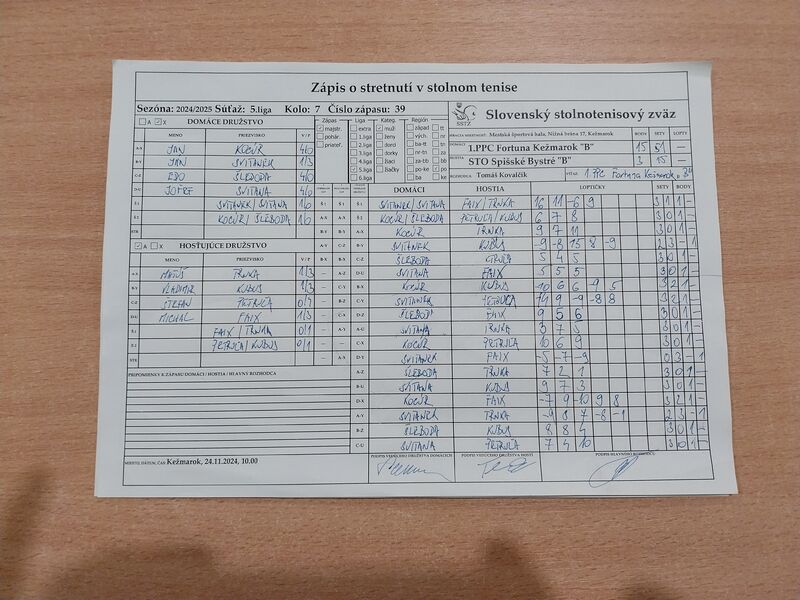 Zápis o stretnutí v stolnom tenise
Sezóna: 2024/2025 Súťaž: 5.liga Kolo: 7 Číslo zápasu: 39
A X DOMÁCE DRUŽSTVO
MENO PRIEZVISKO V/P
A-X JÁN KOCÚR 4/0
B-Y JÁN SVITANEK 1/3
C-Z EDO ŠLEBODA 4/0
D-U SVITANA 4/0
Š.1 SVITANEK/SVITANA 1/0
Š.2 KOCÚR/ŠLEBODA 1/0
STR
A X HOSŤUJÚCE DRUŽSTVO
MENO PRIEZVISKO V/P
A-X MATÚŠ TŔNKA 1/3
B-Y VLADIMÍR KUBUS 1/3
C-Z ŠTEFAN PETRUĽA 0/4
D-U MICHAL FAIX 1/3
Š.1 FAIX/TŔNKA 0/1
Š.2 PETRUĽA/KUBUS 0/1
STR
PRIPOMIENKY K ZÁPASU DOMÁCI / HOSTIA / HLAVNÝ ROZHODCA
MIESTO, DÁTUM, ČAS Kežmarok, 24.11.2024, 10.00
Zápas Liga Kateg. Región
majstr. extra muž západ tt
pohár. 1.liga ženy vých. tn
priateľ. 2.liga dorci ba-tt nr
3.liga dorky nr-tn za
4.liga žiaci ba-bb bb
5.liga žiačky ke-po po
6.liga po-ke ke
SSTZ
Slovenský stolnotenisový zväz
HRACIA MIESTNOSŤ: Mestská športová hala, Nižná brána 17, Kežmarok
DOMÁCI 1.PPC Fortuna Kežmarok "B"
HOSTIA STO Spišské Bystré "B"
BODY SETY LOPTY
15 51 —
3 15 —
ROZHODCA Tomáš Kovalčík VÍŤAZ 1. PPC Fortuna Kežmarok "B"
DOMÁCI HOSTIA LOPTIČKY SETY BODY
Š.1 Š.1 SVITANEK/SVITANA FAIX/TŔNKA 16 11 -6 9 3 1 1 -
KOCÚR/ŠLEBODA PETRUĽA/KUBUS 6 7 8 3 0 1 -
KOCÚR TŔNKA 9 7 11 3 0 1 -
SVITANEK KUBUS -9 -8 15 8 -9 2 3 - 1
ŠLEBODA 5 4 5 3 0 1 -
SVITANA FAIX 5 5 5 3 0 1 -
KOCÚR KUBUS -10 6 6 -9 5 3 2 1 -
SVITANEK PETRUĽA 9 -9 -8 8 3 2 1 -
ŠLEBODA FAIX 9 5 6 3 0 1 -
SVITANA TŔNKA 3 7 5 3 0 1 -
KOCÚR PETRUĽA 10 6 9 3 0 1 -
SVITANEK FAIX -5 -7 -9 0 3 - 1
ŠLEBODA TŔNKA 7 2 1 3 0 1 -
SVITANA KUBUS 9 7 3 3 0 1 -
KOCÚR FAIX -7 9 -10 9 8 3 2 1 -
SVITANEK TŔNKA -9 8 7 -8 -1 2 3 - 1
ŠLEBODA KUBUS 8 8 4 3 0 1 -
SVITANA PETRUĽA 7 4 10 3 0 1 -
PODPIS VEDÚCEHO DRUŽSTVA DOMÁCICH PODPIS VEDÚCEHO DRUŽSTVA HOSTÍ PODPIS HLAVNÉHO ROZHODCU